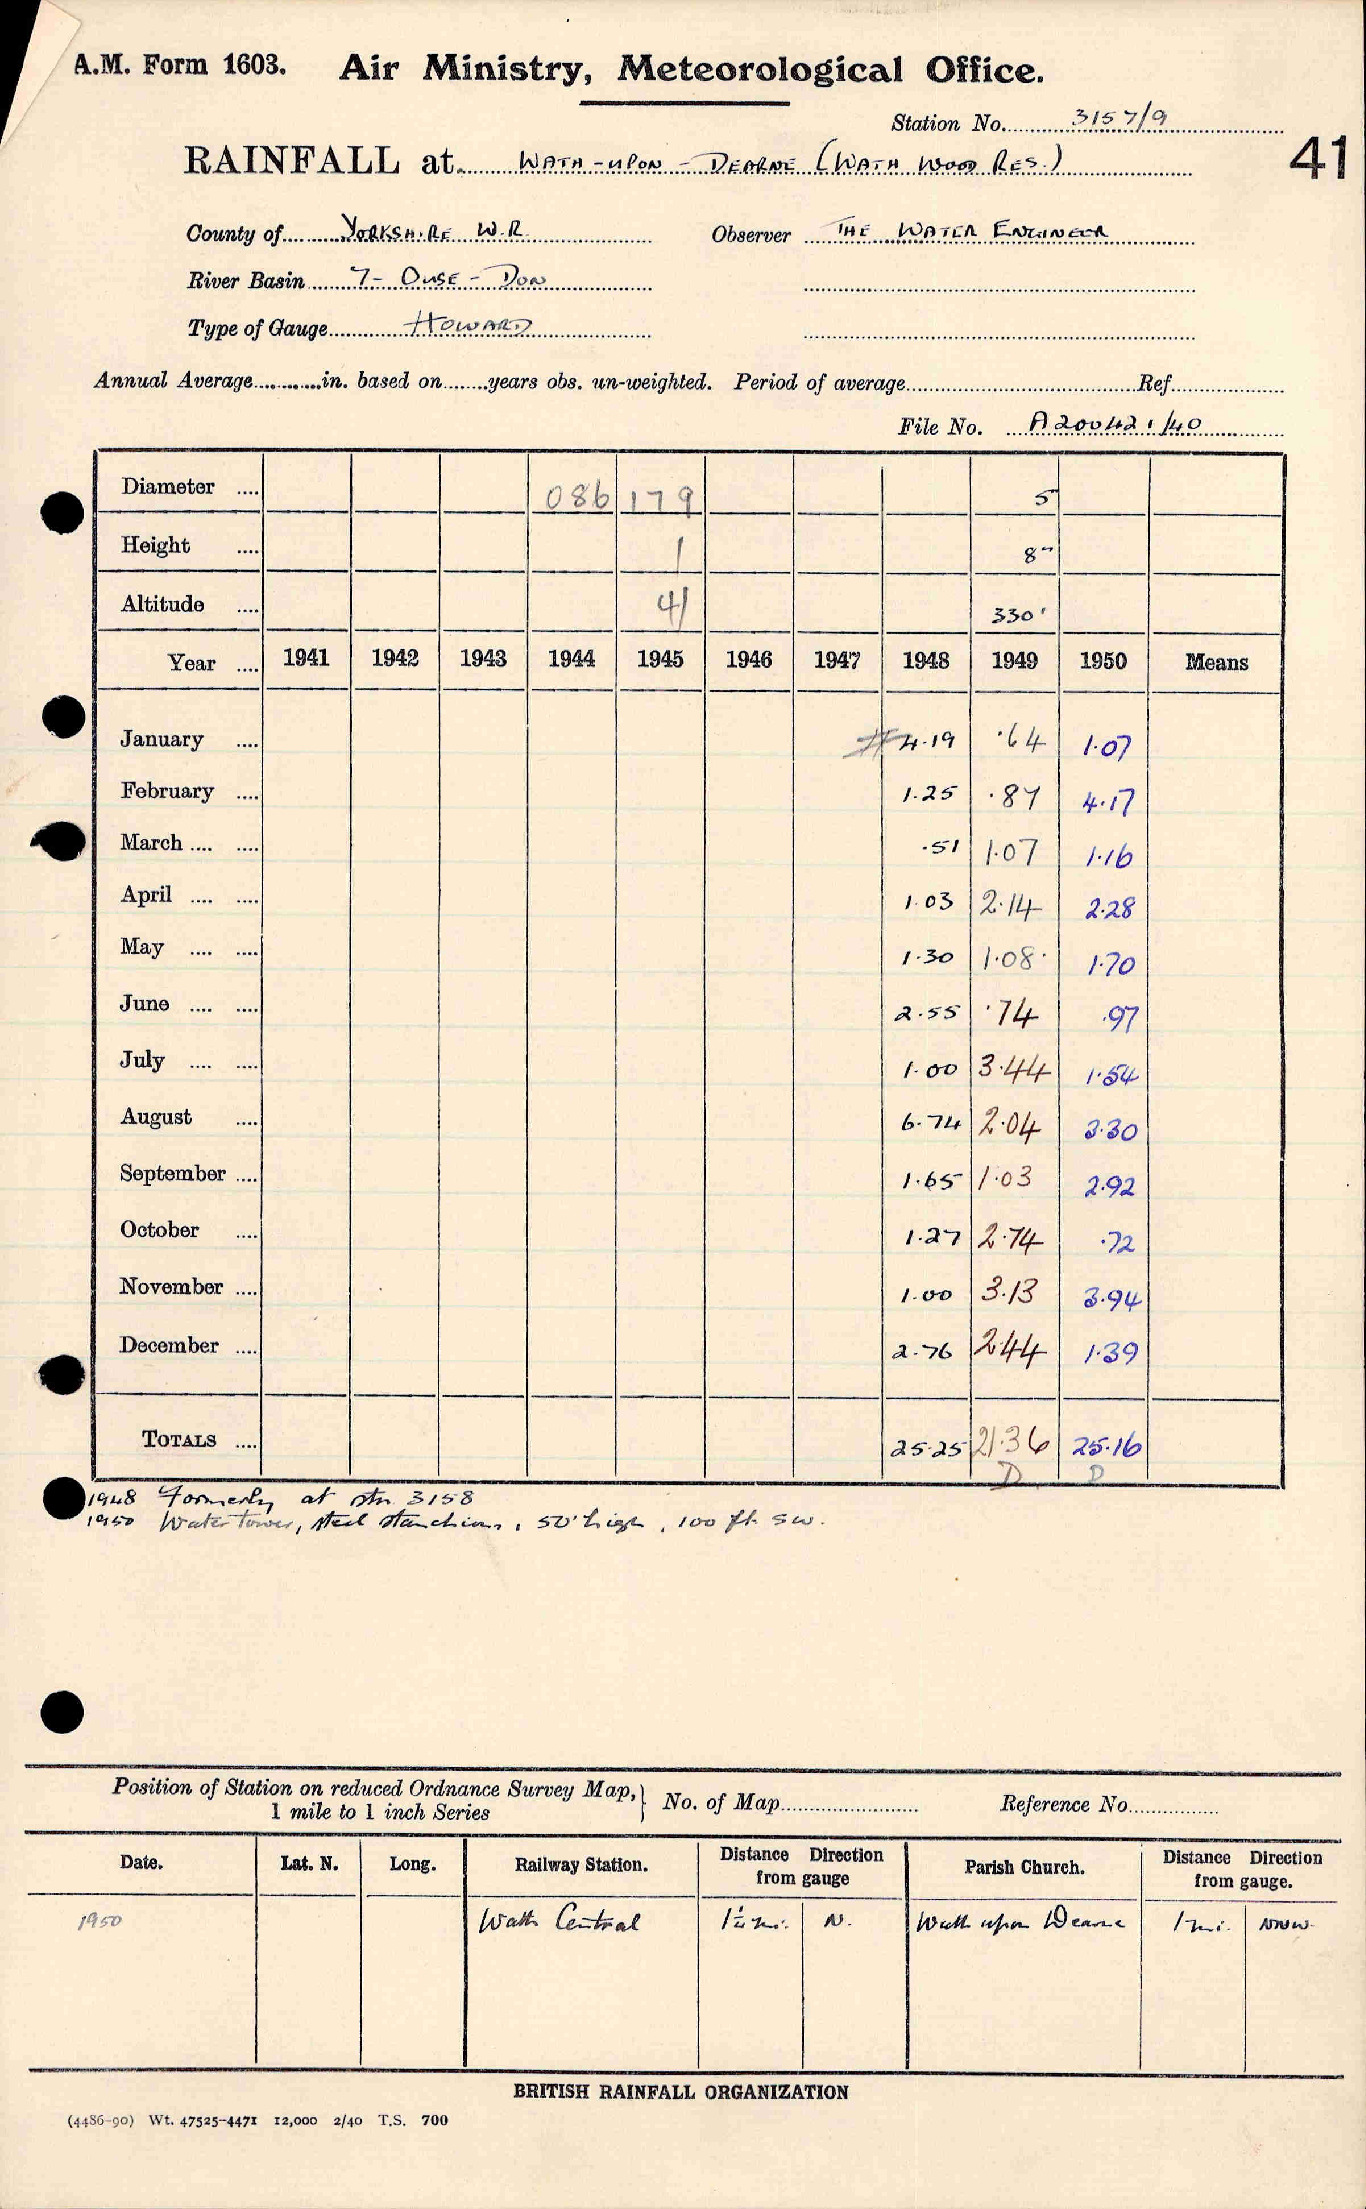 A.M. Form 1603. Air Ministry, Meteorological Office.
Station No. 3157/9
41
RAINFALL at WATH-UPON-DEARNE (WATH WOOD RES.)
County of YORKSHIRE W.R. Observer THE WATER ENGINEER
River Basin 7- OUSE - DON
Type of Gauge HOWARD
Annual Average in. based on years obs. un-weighted. Period of average Ref.
File No. A200421/40
Diameter 086 179 5
Height 1 8"
Altitude 41 330'
Year 1941 1942 1943 1944 1945 1946 1947 1948 1949 1950 Means
January 4.19 .64 1.07
February 1.25 .87 4.17
March .51 1.07 1.16
April 1.03 2.14 2.28
May 1.30 1.08 1.70
June 2.55 .74 .97
July 1.00 3.44 1.54
August 6.74 2.04 3.30
September 1.65 1.03 2.92
October 1.27 2.74 .72
November 1.00 3.13 3.94
December 2.76 2.44 1.39
TOTALS 25.25 21.36 25.16
D D
1948 Formerly at stn 3158
1950 Water Tower, steel stanchions, 50' high, 100 ft. SW.
Position of Station on reduced Ordnance Survey Map, 1 mile to 1 inch Series } No. of Map Reference No.
Date. Lat. N. Long. Railway Station. Distance Direction from gauge Parish Church. Distance Direction from gauge.
1950 Wath Central 1¼ mi. N. Wath upon Dearne 1 mi. NNW.
BRITISH RAINFALL ORGANIZATION
(4486-90) Wt. 47525-4471 12,000 2/40 T.S. 700